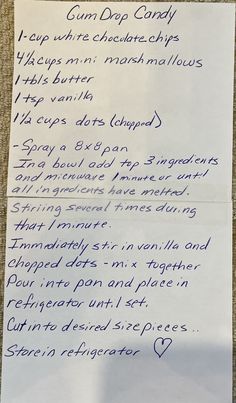 Gum Drop Candy
1-cup white chocolate chips
4 1/2 cups mini marshmallows
1 tbls butter
1 tsp vanilla
1 1/2 cups dots (chopped)
- Spray a 8x8 pan
In a bowl add top 3 ingredients
and microwave 1 minute or until
all ingredients have melted.
Striing several times during
that 1 minute.
Immediately stir in vanilla and
chopped dots - mix together
Pour into pan and place in
refrigerator until set.
Cut into desired size pieces..
Store in refrigerator ♡